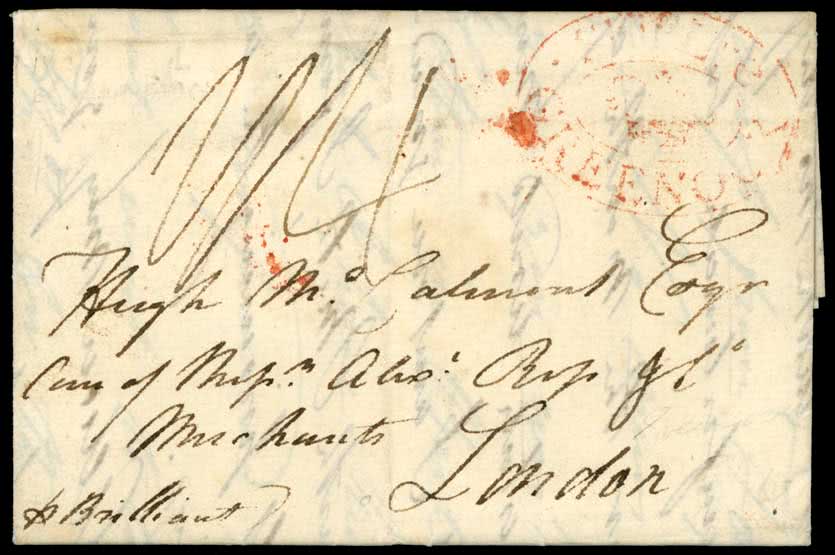 GREENOCK
1/4
Hugh Mc Calmont Esqr
Care of Messrs Alexr Ross & Co
Merchants
London
p Brilliant